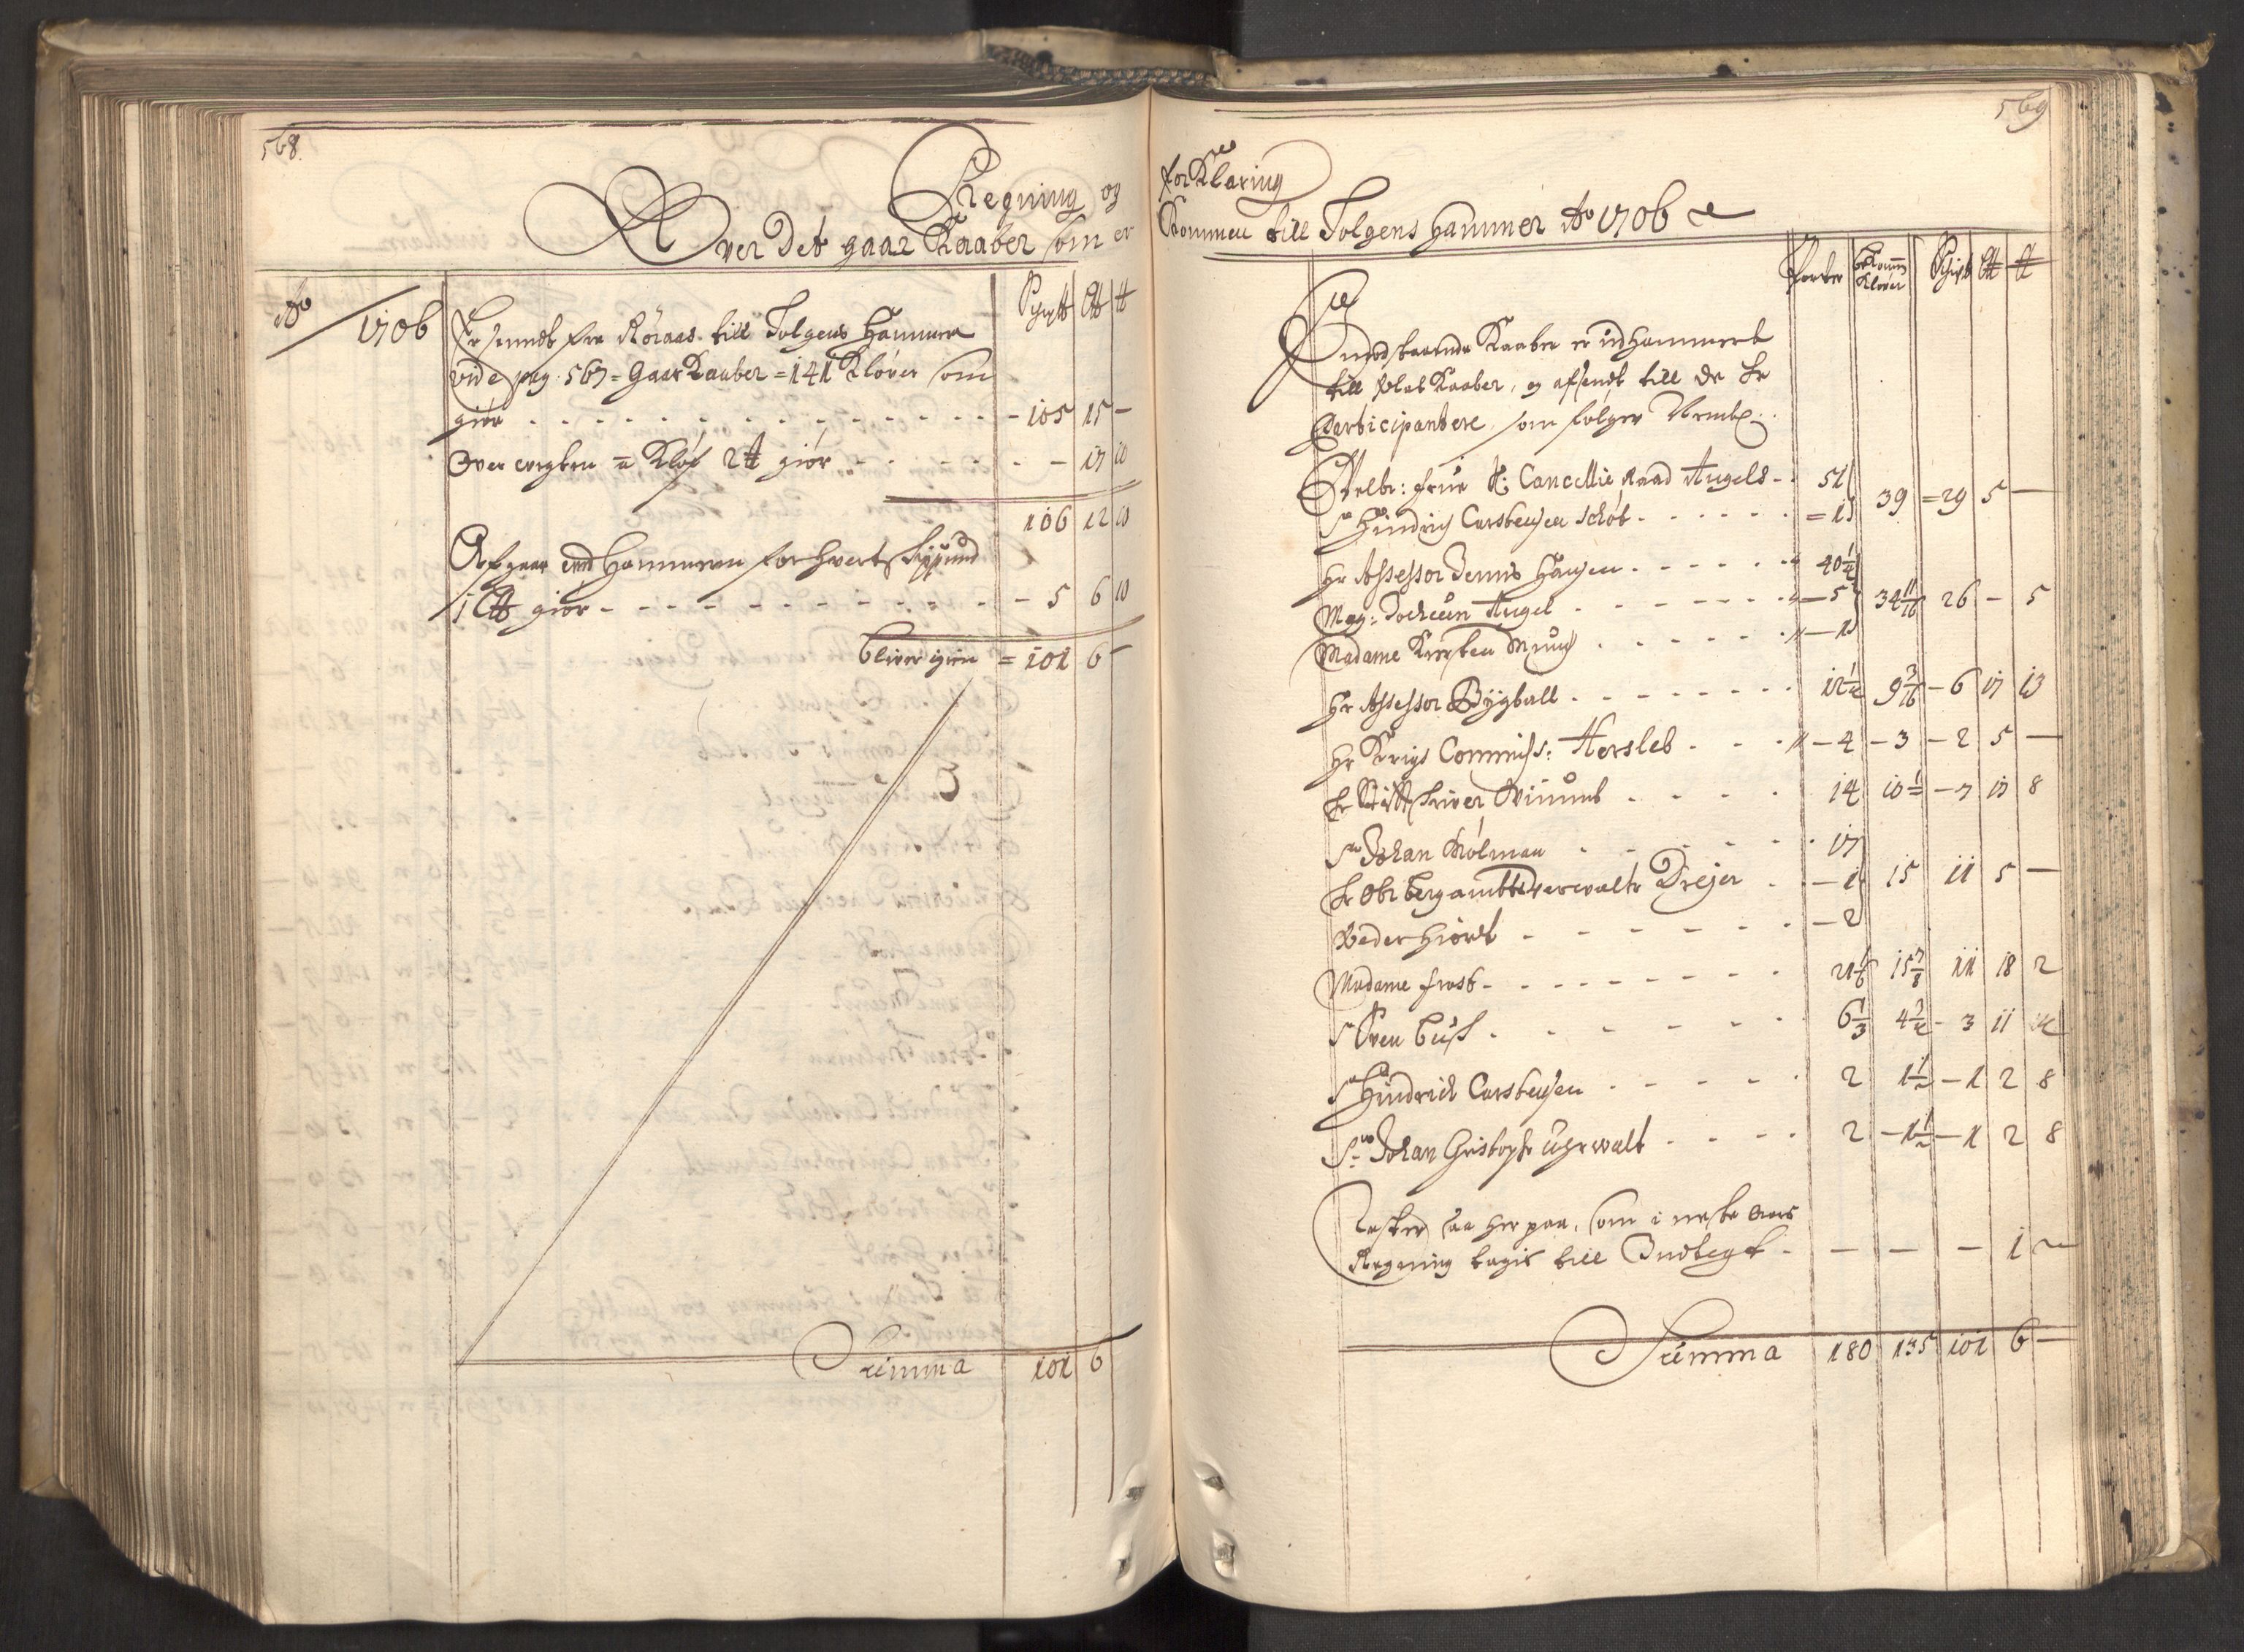 568.
Regning og
Over det gaar Kaaber som er
Ao 1706
Er sendt fra Röraas till Tolgens Hammer
vide pag. 567 = Gaar Kaaber = 141 Klöver som
giör - 105 15 -
Over vegten = a Klöf 2 ℔ giör - - 17 10
106 12 10
Afgaar ved Hammeren for hvert Skippund
1 L℔ giör - 5 6 10
bliver igien = 101 6 -
Summa 101 6
569
for Klaring
Kommen till Tolgens Hammer Ao 1706
Parter Klöver
modstaaende Kaaber er udhammert
till Plat Kaaber, og afsendt till de Hr
Participantere, som fölger Nemlig
Velbr: Frue H: Cancellie Raad Angels - 51
39 = 29 5 -
Sr Hindrich Carstensen Schöt = 1
Hr Assessor Dennis Hansen 40 1/4
Mag: Jochum Angel - 5 34 11/16 26 - 5
Madame Kirsten Munch - 1
Hr Assessor Bÿgball 12 1/4 9 3/16 - 6 17 13
Hr Krigs Commiss: Hersleb - 4 - 3 - 2 5 -
Hr Stiftskriver 14 10 1/2 - 7 17 8
Sr Johan Holman 17
Hr Obr bergambtsverwalter Dreÿer - 1 15 11 5 -
Peder Hiort - 2
Madame Frost 21 1/6 15 7/8 11 18 2
Sr Sven Busk 6 1/3 4 3/4 - 3 11 4
Sr Hindrich Carstensen 2 1 1/2 - 1 2 8
Sr Johan Christopher Uhrwalt 2 - 1 1/2 - 1 2 8
saa her paa, som i neste Aars
Regning tagis till Indtegt - - - - 1 -
Summa 180 135 101 6 -